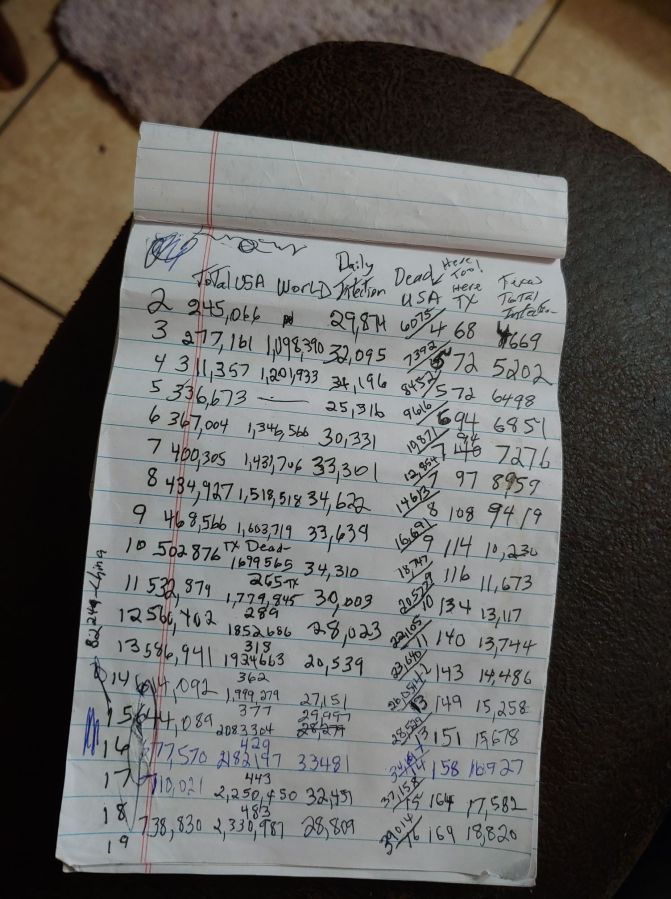 Total USA World Daily Infection Dead USA Here Too! Here TX Texas Total Infection
2 245,066 29,874 6075 4 68 4669
3 277,161 1,098,390 32,095 7392 5 72 5202
4 311,357 1,201,933 34,196 8452 5 72 6498
5 336,673 — 25,316 9616 6 94 6851
6 367,004 1,346,566 30,331 10,871 7 94 7276
7 400,305 1,431,706 33,301 12,854 7 97 8959
8 434,927 1,518,518 34,622 14613 8 108 9419
9 468,566 1,603,719 33,639 16,691 9 114 10,230
TX Dead
10 502876 1699565 34,310 18,747 116 11,673
265 TX
11 532,879 1,779,845 30,003 20577 10 134 13,117
289
12 560,402 1852686 28,023 22,105 11 140 13,744
318
13 586,941 1924663 20,539 23,640 12 143 14,486
362
14 614,092 1,999,279 27,151 13 149 15,258
377
15 644,089 2083304 29,997 28,529 13 151 15,678
429
16 677,570 2182197 33481 14 158 16927
443
17 710,021 2,250,450 32,451 37,158 15 164 17,582
483
18 738,830 2,330,987 28,809 39014 16 169 18,820
19
82,249 - China